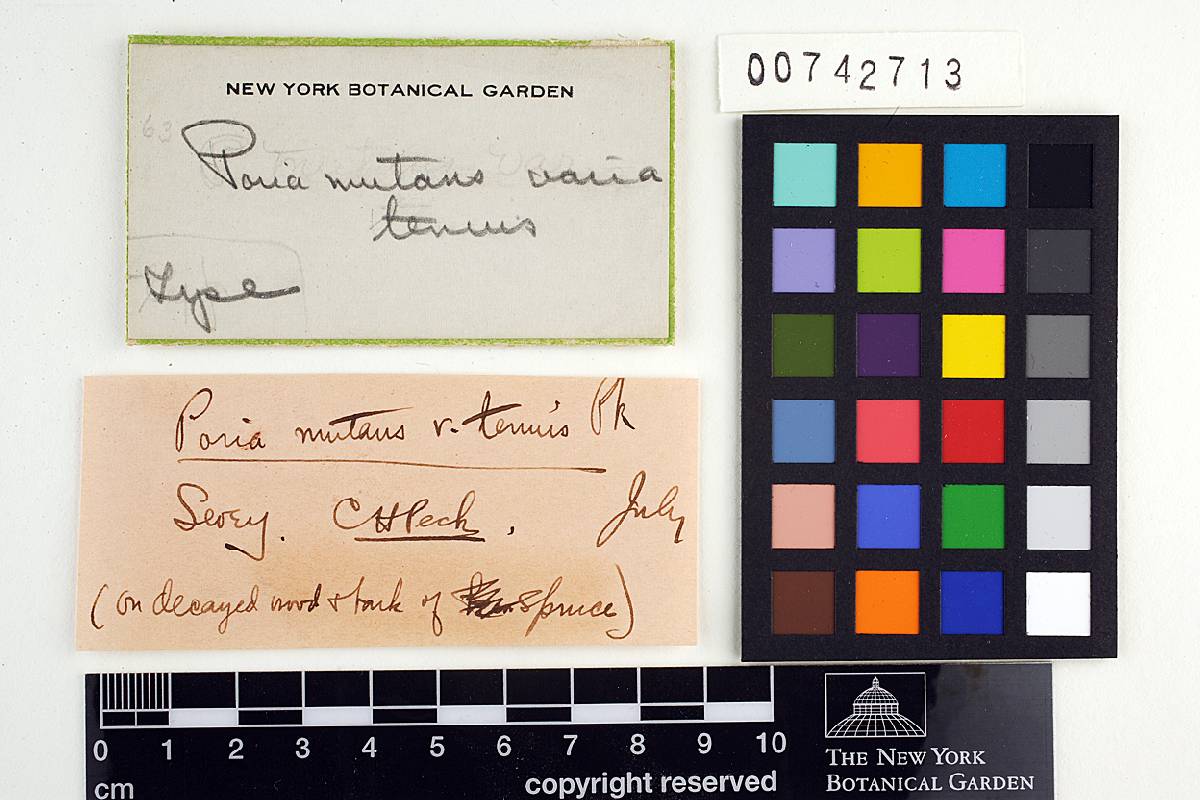 NEW YORK BOTANICAL GARDEN
63
Poria mutans varia
tenuis
Type
00742713
Poria mutans v. tenuis Pk
Sevey. CHPeck, July
(on decayed wood & bark of spruce)
0 1 2 3 4 5 6 7 8 9 10
cm
copyright reserved
THE NEW YORK
BOTANICAL GARDEN